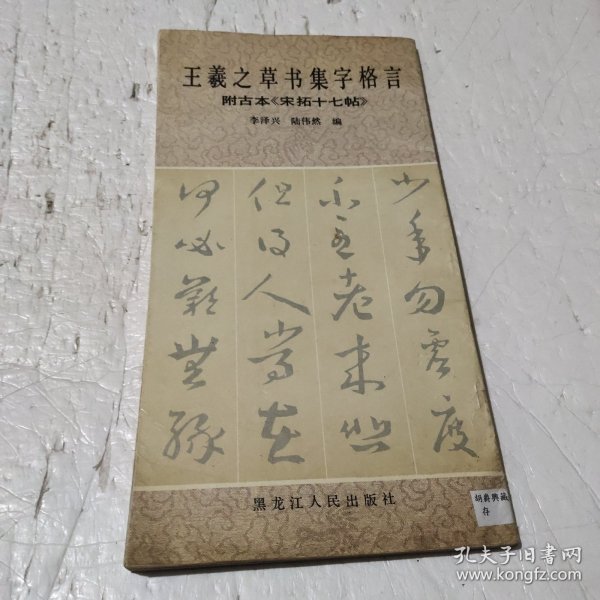 王羲之草书集字格言
附古本《宋拓十七帖》
李泽兴 陆伟然 编
少年勿虚度
老来
但得人常在
何必無缘
黑龙江人民出版社
興藏
存
孔夫子旧书网
www.kongfz.com